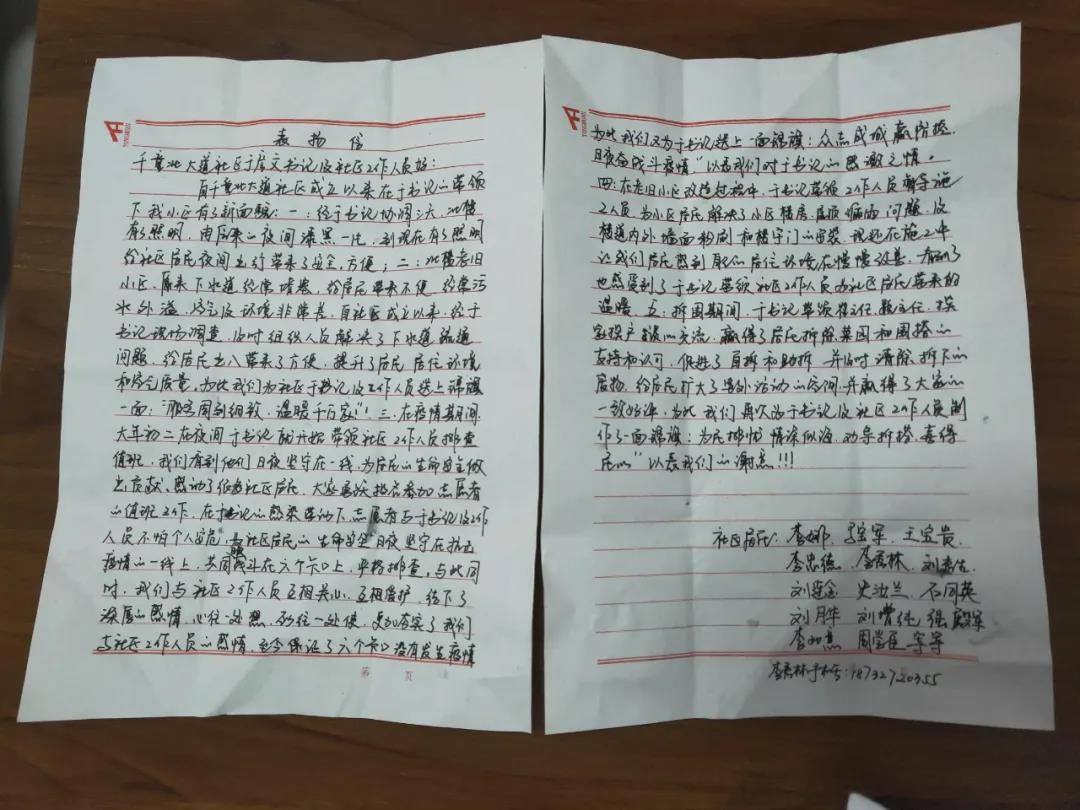 表扬信
千童北大道社区于彦文书记及社区工作人员好:
自千童北大道社区成立以来在于书记的带领
下我小区有了新面貌:一:经于书记协调了六、
有了照明,由原来的夜间漆黑一片,到现在有了照明
给社区居民夜间出行带来了安全,方便;二:老旧
小区,原来下水道经常堵塞,给居民带来不便,经常污
水外溢,空气及环境非常差,自社区成立以来,经于
书记现场调查,临时组织人员解决了下水道疏通
问题,给居民出入带来了方便,提升了居民居住环境
和空气质量,为此我们为社区于书记及工作人员送上锦旗
一面:"服务周到细致,温暖千万家"!三:在疫情期间,
大年初二在夜间于书记就开始带领社区工作人员排查
值班,我们看到他们日夜坚守在一线,为居民的生命安全做
出贡献,感动了社区居民,大家踊跃报名参加志愿者
的值班工作,在于书记的感染带动下,志愿者与于书记及工作
人员不怕个人安危,为社区居民的生命安全日夜坚守在抗击
疫情的一线上,共同战斗在六个卡口上,严格排查,与此同
时,我们与社区工作人员互相关心,互相爱护,结下了
深厚的感情,心往一处想,劲往一处使,更加夯实了我们
与社区工作人员的感情,至今保证了六个卡口没有发生疫情
第 页
为此我们又为于书记送上一面锦旗:众志成城赢防控,
日夜奋战斗疫情"以表我们对于书记的感激之情。
四:在老旧小区改造过程中,于书记带领工作人员督导施
工人员,为小区居民解决了小区楼房,屋顶漏雨问题,及
楼道内外墙面粉刷和楼宇门的安装,现还在施工中
让我们居民感到我们居住环境在慢慢改善,看到了
也感受到了于书记带领社区工作人员为社区居民带来的
温暖。五:拆围期间,于书记带领主任,挨
家挨户谈心交流,赢得了居民拆除菜园和围搭的
支持和认可,促进了自拆和助拆,并临时清除,拆下的
废物,给居民扩大了室外活动的空间,并赢得了大家的
一致好评,为此我们再次为于书记及社区工作人员制
作了一面锦旗:为民排忧情深似海,劝导拆搭,喜得
民心"以表我们的谢意!!!
社区居民:李娜、王宝贵、
李忠德、李居林、刘
刘、史汝兰、石同英
刘月华 刘增纯 张殿军
李如意 周学臣等等
李居林手机号:18732720355